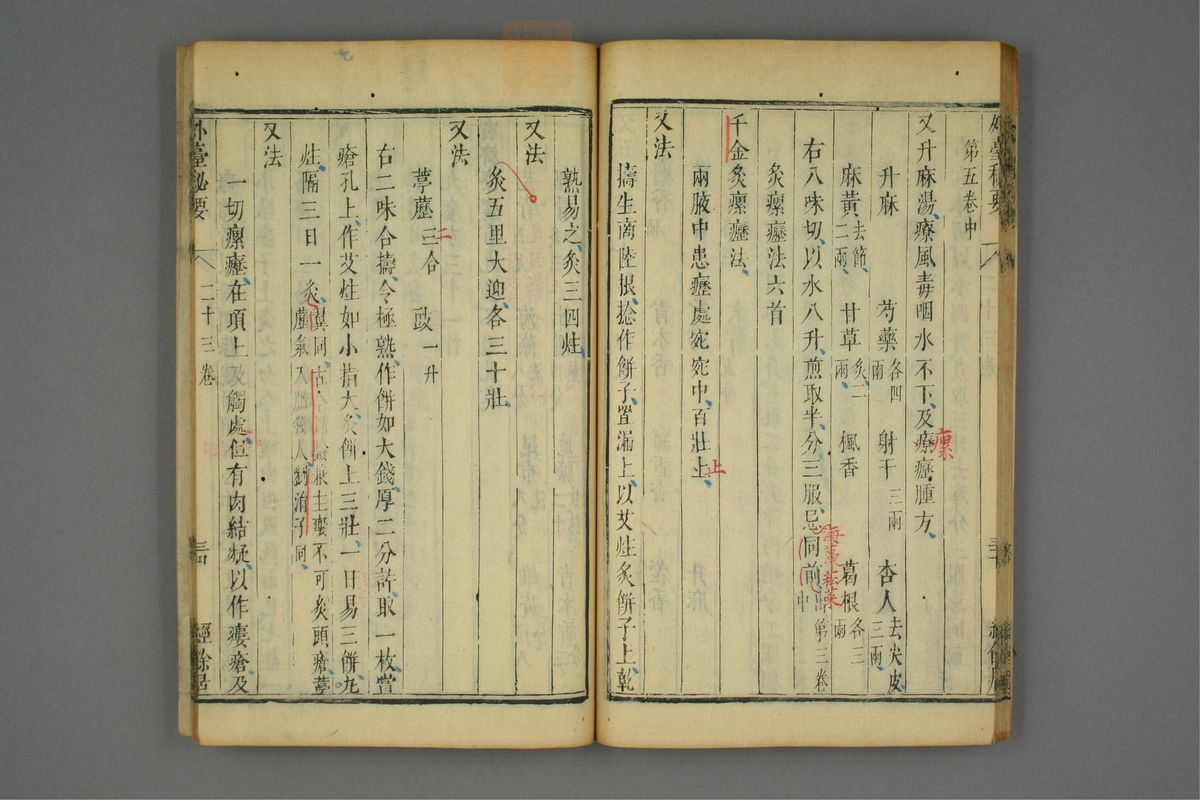 第五卷中
又升麻湯療風毒咽水不下及療瘰癧腫方
升麻 芍藥各四兩 射干三兩 杏人去尖皮三兩
麻黃去節二兩 甘草炙二兩 楓香 葛根各三兩
右八味切以水八升煎取半分三服忌同前出第三卷中
海藻菘菜
灸瘰癧法六首
千金灸瘰癧法
兩腋中患癧處宛宛中百壯止
又法
擣生商陸根捻作餅子置漏上以艾炷灸餅子上乾
熟易之灸三四炷
又法
灸五里大迎各三十壯
又法
葶藶三合 豉一升
二
右二味合擣令極熟作餅如大錢厚二分許取一枚當
瘡孔上作艾炷如小指大灸餅上三壯一日易三餅九
炷隔三日一灸
葶藶氣入腦殺人劉涓子同
又法
一切瘰癧在項上及觸處但有肉結凝以作瘻瘡及
外臺秘要
二十三卷
三四
經餘居